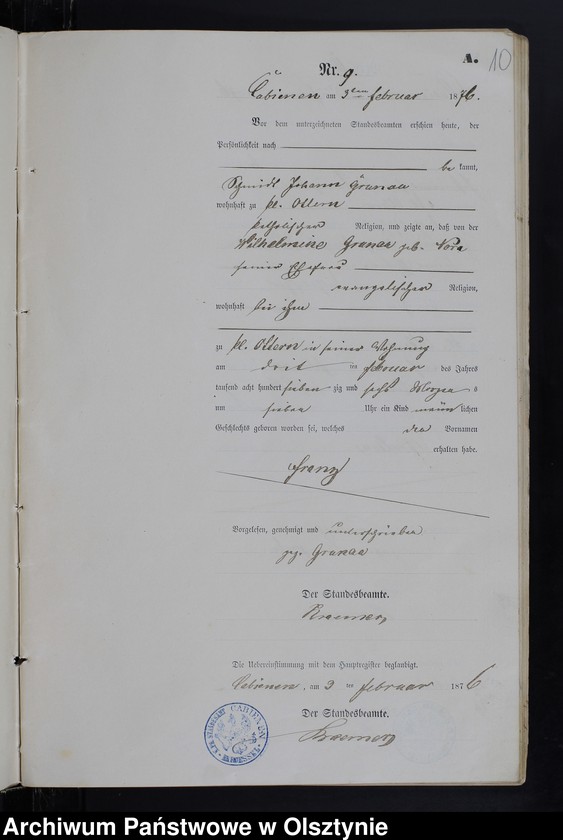 A. 10
Nr. 9.
Cabienen am 3ten Februar 1876.
Vor dem unterzeichneten Standesbeamten erschien heute, der
Persönlichkeit nach
be kannt,
Schmidt Johann Granaa
wohnhaft zu kl. Ottern
katholischer Religion, und zeigte an, daß von der
Wilhelmine Granaa geb.
seiner Ehefrau
evangelischer Religion,
wohnhaft bei ihm
zu kl. Ottern in seiner Wohnung
am dritten Februar des Jahres
tausend acht hundert siebenzig und sechs Morgens
um sieben Uhr ein Kind männlichen
Geschlechts geboren worden sei, welches den Vornamen
erhalten habe.
Franz
Vorgelesen, genehmigt und unterschrieben
gez. Granaa
Der Standesbeamte.
Die Uebereinstimmung mit dem Hauptregister beglaubigt.
Cabienen, am 3 ten Februar 1876
Der Standesbeamte.
CABIENEN
Archiwum Państwowe w Olsztynie